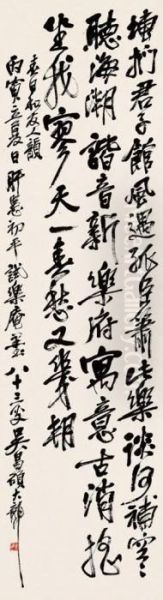 塼捫君子館風過孤臣簫此樂談何補空〻
聽海潮諧音新樂府寓意古消搖
坐我寥天一春愁又幾朝
春日和友人韻
丙寅立夏日肝恙初平試樂庵墨八十三叟吳昌碩大聾